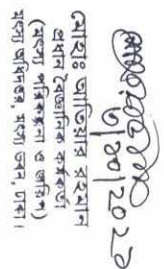 মোহাঃ আতিয়ার রহমান
প্রধান বৈজ্ঞানিক কর্মকর্তা
(মৎস্য পরিকল্পনা ও জরিপ)
মৎস্য অধিদপ্তর, মৎস্য ভবন, ঢাকা।